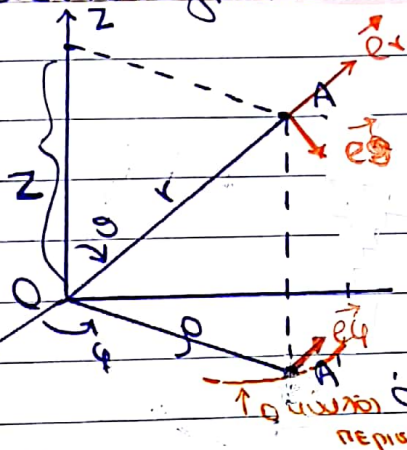 z
A
e⃗r
e⃗θ
Z
r
θ
O
φ
ρ
e⃗φ
A'
↑ ο κύκλος
περισ